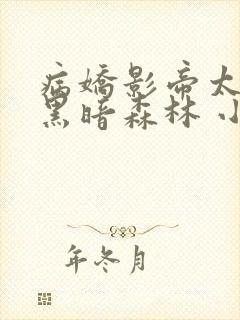 病嬌影帝
黑暗森林 小
年冬月